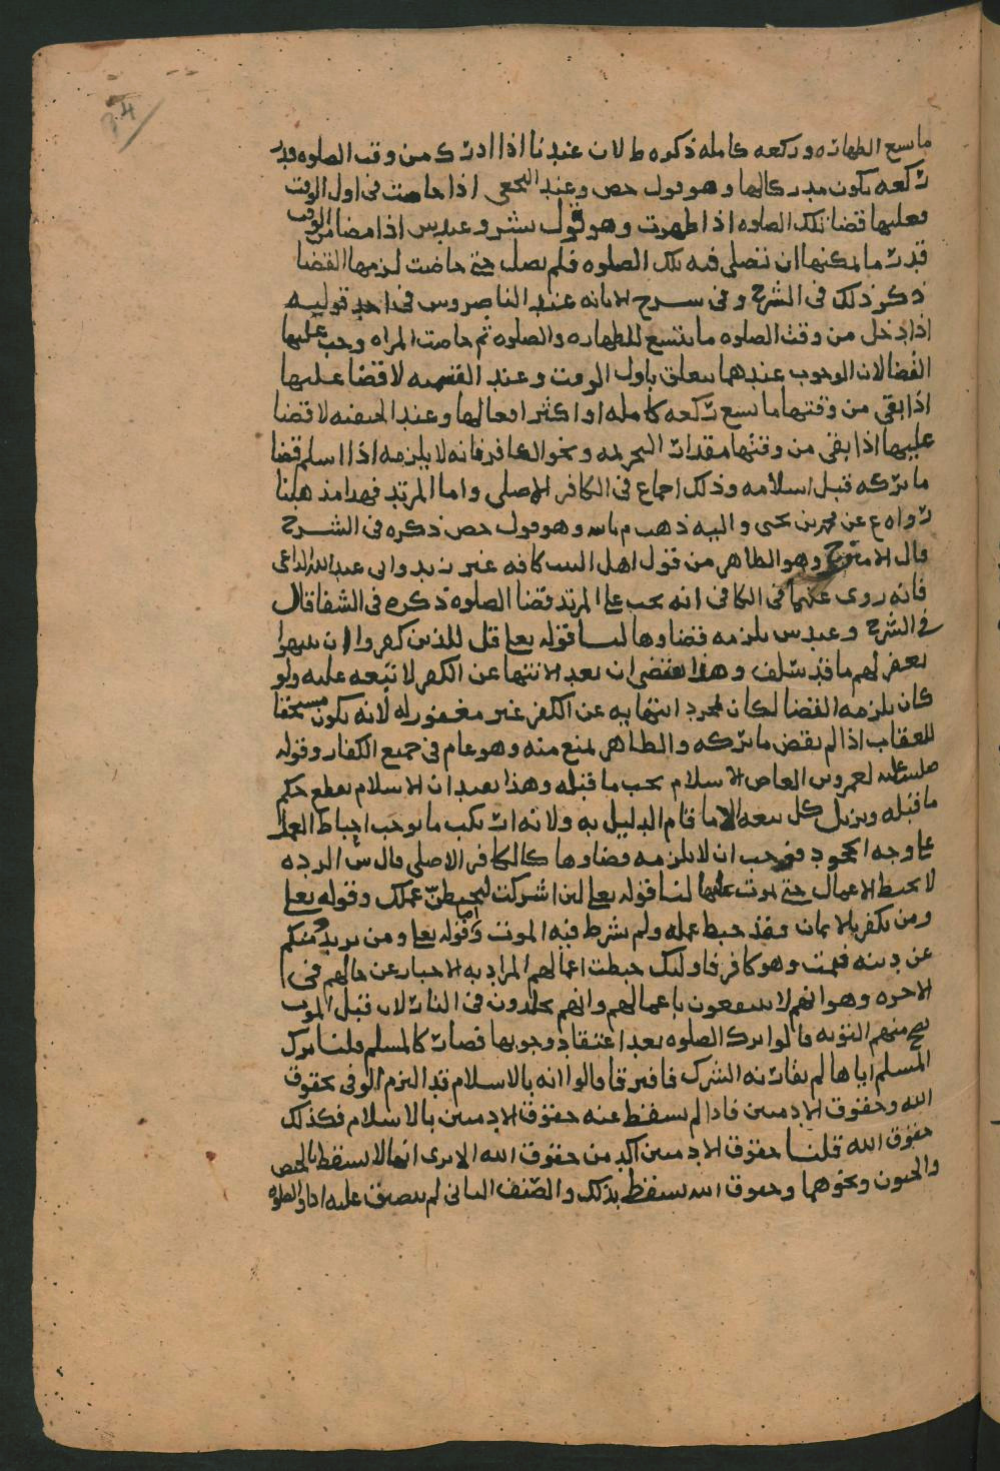 34
ما يسع الطهاره وركعه كامله ذكره ط لان عندنا اذا ادرك من وقت الصلوه قدر
ركعه يكون مدركا لها وهو قول حص وعند النخعي اذا حاضت في اول الوقت
فعليها قضا تلك الصلوه اذا طهرت وهو قول بشر وعند س اذا مضا من الوقت
قدر ما يمكنها ان تصلي فيه تلك الصلوه فلم تصل حتى حاضت لزمها القضا
ذكر ذلك في الشرح وفي شرح الابانه عند الناصر وس في احد قوليه
اذا دخل من وقت الصلوه ما يتسع للطهاره والصلوه ثم حاضت المراه وجب عليها
القضا لان الوجوب عندهما يتعلق باول الوقت وعند القسميه لا قضا عليها
اذا بقي من وقتها ما يسع ركعه كامله او اكثر افعالها وعند الحنفيه لا قضا
عليها اذا بقي من وقتها مقدار التحريمه ونحو الكافر فانه لا يلزمه اذا اسلم قضا
ما تركه قبل اسلامه وذلك اجماع في الكافر الاصلي واما المرتد فهذا مذهبنا
رواه ع عن محمد بن يحيى واليه ذهب م بالله وهو قول حص ذكره في الشرح
قال الامير ح وهو الظاهر من قول اهل البيت كافه غير زيد وابي عبد الله الداعي
فانه روى عنهما في الكافي انه يجب على المرتد قضا الصلوه ذكره في الشفا قال
في الشرح وعند س يلزمه قضاوها لنا قوله تعلى قل للذين كفروا ان ينتهوا
يغفر لهم ما قد سلف وهذا يقتضي ان بعد الانتها عن الكفر لا تبعه عليه ولو
كان يلزمه القضا لكان بمجرد انتهايه عن الكفر غير مغفور له لانه يكون مستحقا
للعقاب اذا لم يقض ما تركه والظاهر يمنع منه وهو عام في جميع الكفار وقوله
صلى الله عليه لعمرو بن العاص الاسلام يجب ما قبله وهذا يفيد ان الاسلام يقطع حكم
ما قبله ويزيل كل تبعه الا ما قام الدليل به ولانه ارتكب ما يوجب احباط العمل
على وجه الجحود فوجب ان لا يلزمه قضاوها كالكافر الاصلي قال ش الرده
لا تحبط الاعمال حتى يموت عليها لنا قوله تعلى لئن اشركت ليحبطن عملك وقوله تعلى
ومن يكفر بالايمان فقد حبط عمله ولم يشرط فيه الموت واما قوله تعلى ومن يرتدد منكم
عن دينه فيمت وهو كافر فاولئك حبطت اعمالهم المراد به الاخبار عن حالهم في
الاخره وهو انهم لا ينتفعون باعمالهم وانهم مخلدون في النار لان قبل الموت
يصح منهم التوبه قالوا ترك الصلوه بعد اعتقاد وجوبها فصار كالمسلم قلنا ترك
المسلم اياها لم يقارنه الشرك فافترقا قالوا انه بالاسلام قد التزم الوفى بحقوق
الله وحقوق الادميين فاذا لم يسقط عنه حقوق الادميين بالاسلام فكذلك
حقوق الله قلنا حقوق الادميين اكد من حقوق الله الا ترى انها لا تسقط بالحيض
والجنون ونحوهما وحقوق الله تسقط بذلك والصنف الثاني لم يتضيق عليه ادا الصلوه